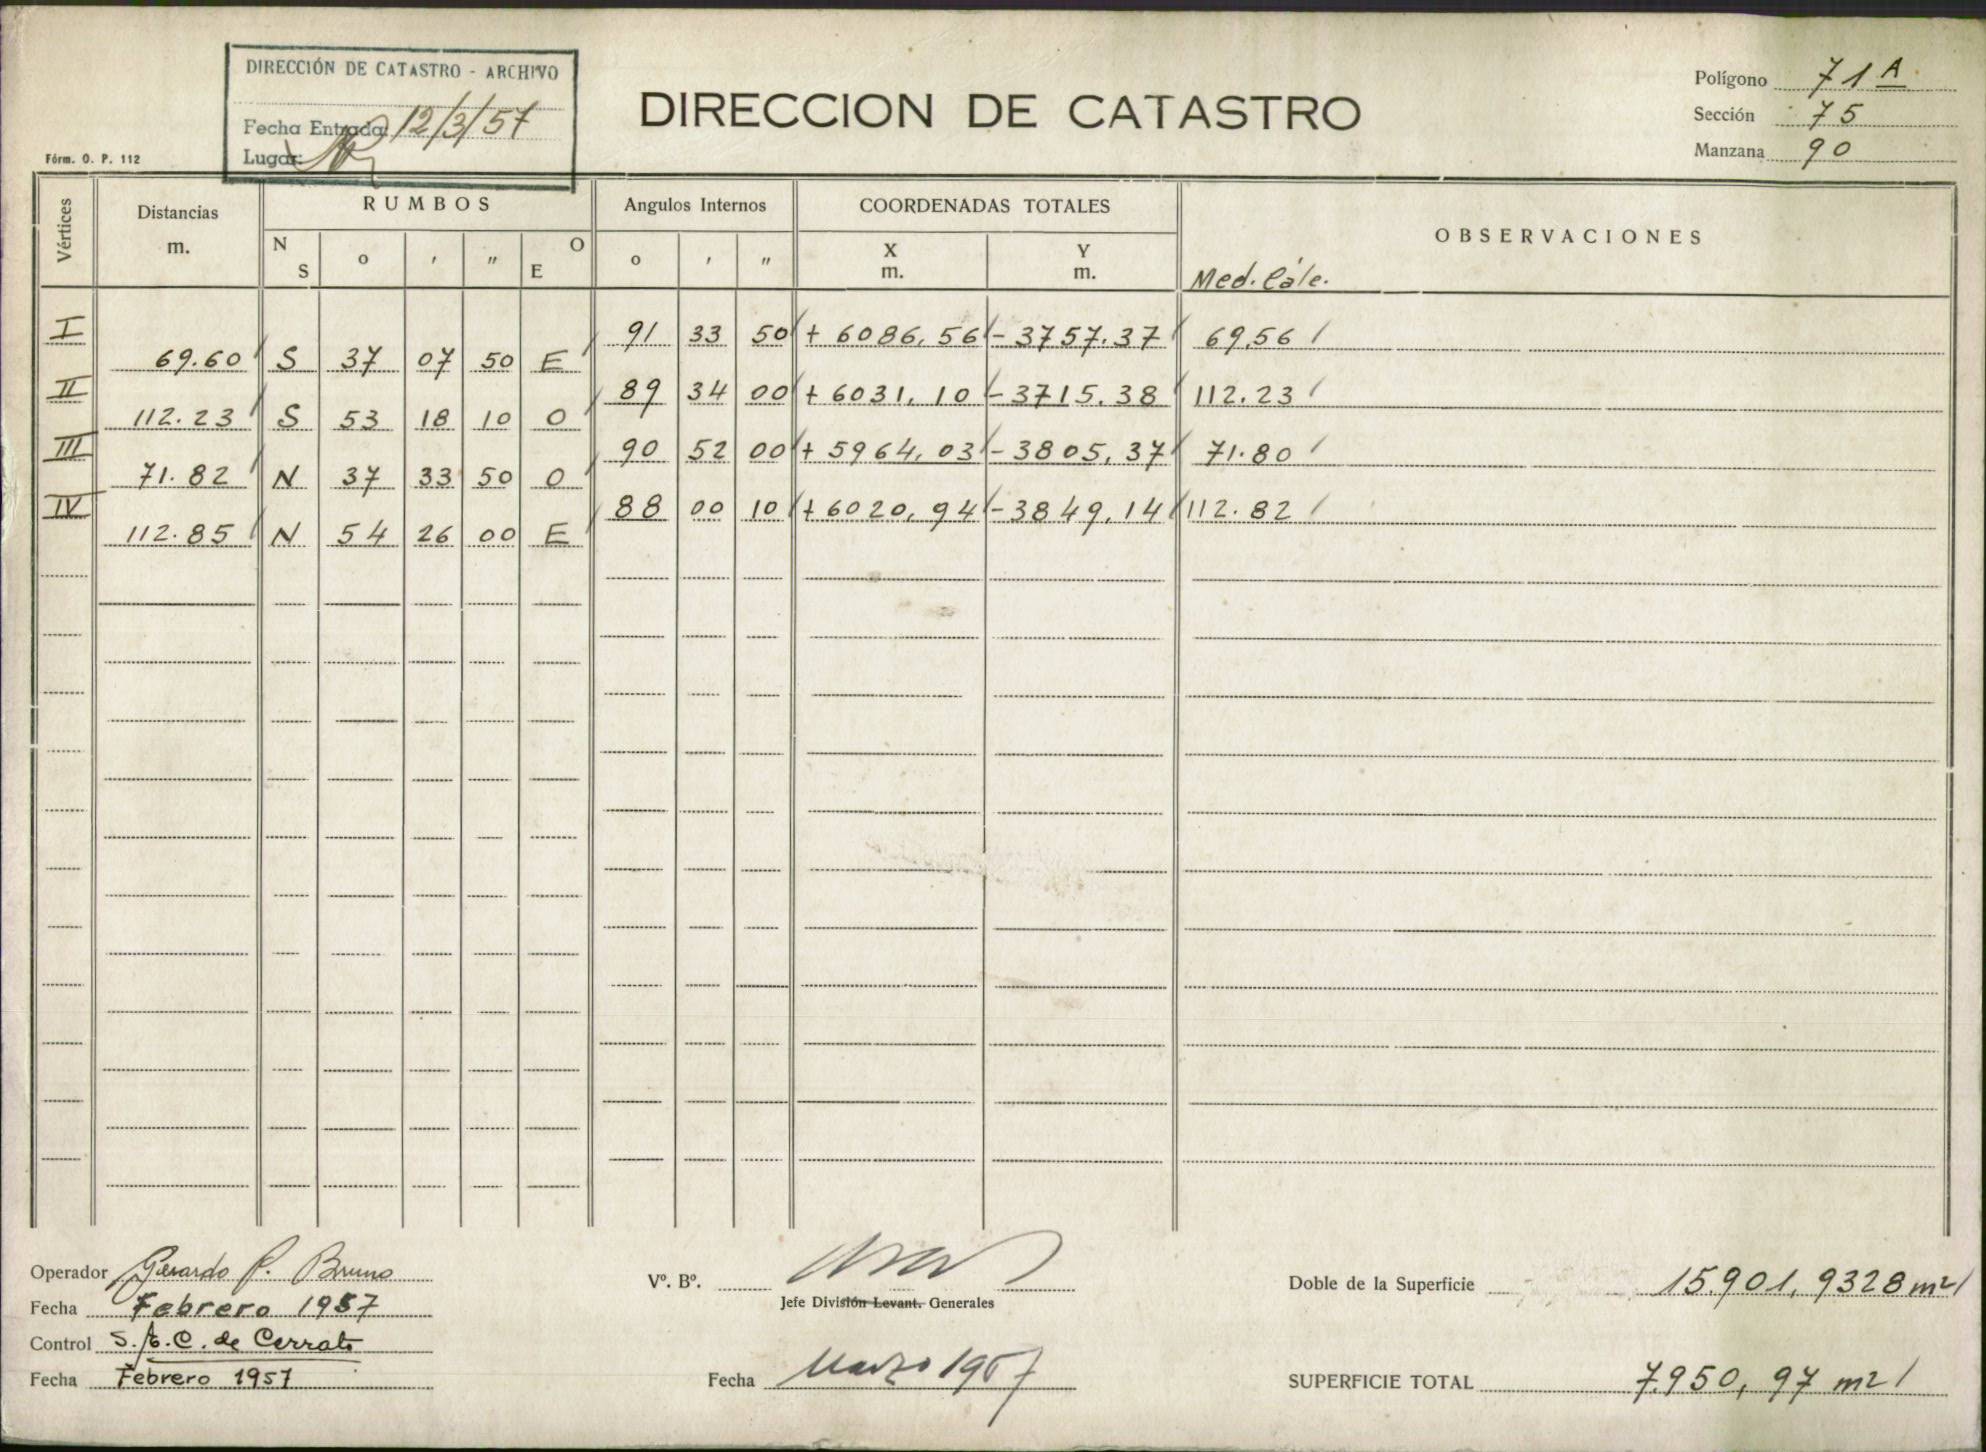 DIRECCIÓN DE CATASTRO - ARCHIVO
Fecha Entrada: 12/3/57
Lugar:
DIRECCION DE CATASTRO
Polígono 71 A
Sección 75
Manzana 90
Fórm. O. P. 112
Vértices
Distancias
m.
RUMBOS
N S o ' " O E
Angulos Internos
o ' "
COORDENADAS TOTALES
X
m.
Y
m.
OBSERVACIONES
Med. Cálc.
I 91 33 50 + 6086,56 - 3757.37 69,56
69.60 S 37 07 50 E
II 89 34 00 + 6031,10 - 3715.38 112.23
112.23 S 53 18 10 O
III 90 52 00 + 5964,03 - 3805,37 71.80
71.82 N 37 33 50 O
IV 88 00 10 + 6020,94 - 3849,14 112.82
112.85 N 54 26 00 E
Operador Gerardo P. Bruno
Fecha Febrero 1957
Control S. E. C. de Cerrato
Fecha Febrero 1957
Vº. Bº.
Jefe División Levant. Generales
Fecha Marzo 1957
Doble de la Superficie 15.901,9328 m2
SUPERFICIE TOTAL 7.950,97 m2